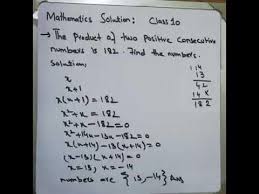 Mathematics Solution: Class 10
→ The product of two positive consecutive
numbers is 182. Find the numbers.
Solution,
x
x+1
x(x+1) = 182
x²+x = 182
x²+x-182=0
x²+14x-13x-182=0
x(x+14)-13(x+14)=0
(x-13)(x+14)=0
x=13, x=-14
numbers are {13,-14} Ans
14
13
42
14x
182